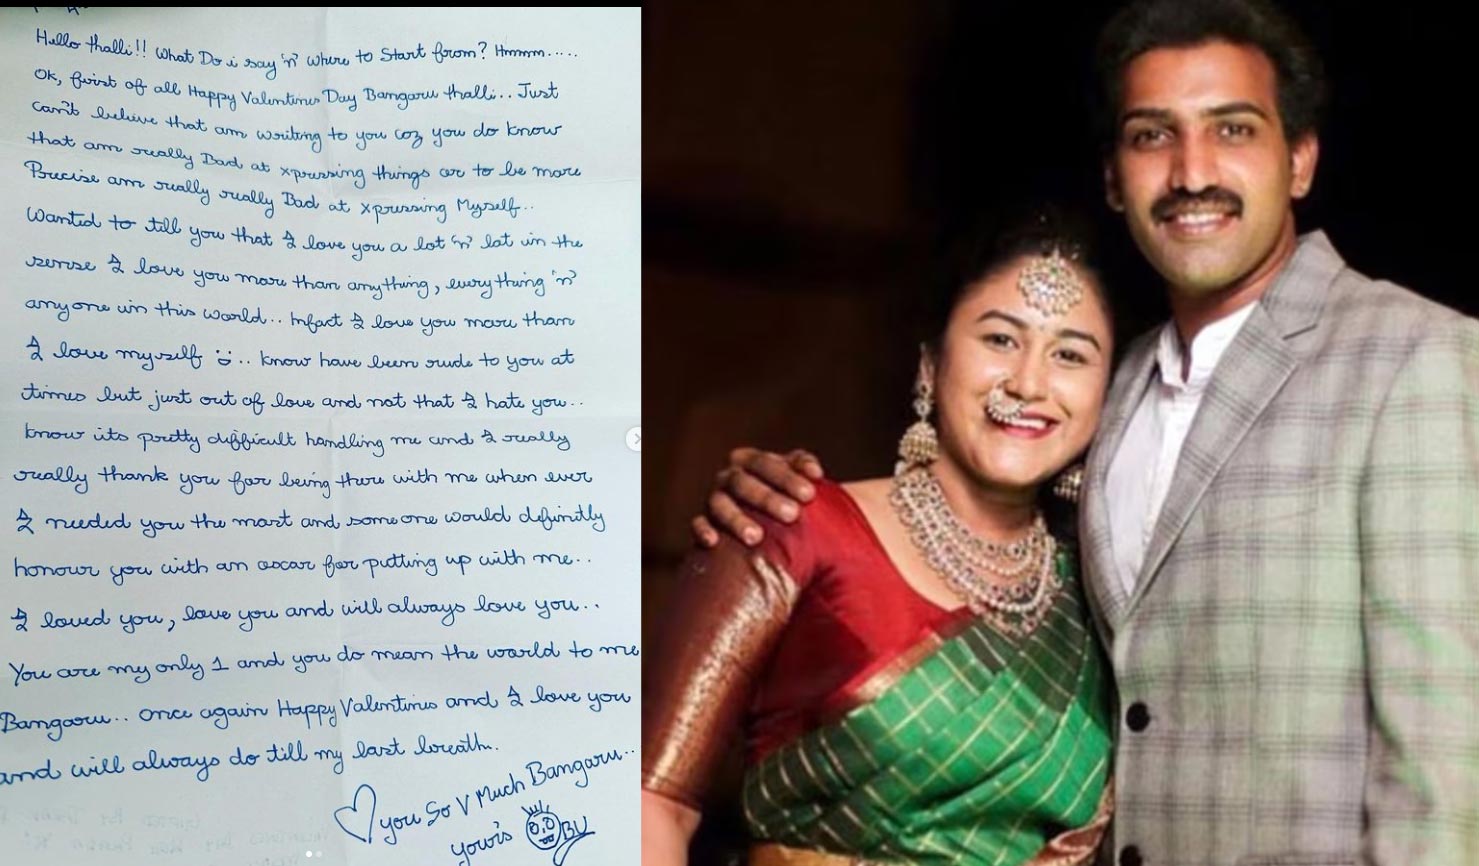 Hello thalli!! What Do i say 'n' where to Start from? Hmmm.....
Ok, first of all Happy Valentines Day Bangaru thalli.. Just
can't believe that am writing to you coz you do know
that am really Bad at xpressing things or to be more
Precise am really really Bad at xpressing Myself..
Wanted to tell you that I love you a lot 'n' lot in the
sense I love you more than anything, everything 'n'
anyone in this world.. Infact I love you more than
I love myself ü.. know have been rude to you at
times but just out of love and not that I hate you..
know its pretty difficult handling me and I really
really thank you for being there with me when ever
I needed you the most and someone would definitly
honour you with an oscar for putting up with me..
I loved you, love you and will always love you..
You are my only 1 and you do mean the world to me
Bangaru.. once again Happy Valentines and I love you
and will always do till my last breath..
♡ you So V Much Bangaru..
your's